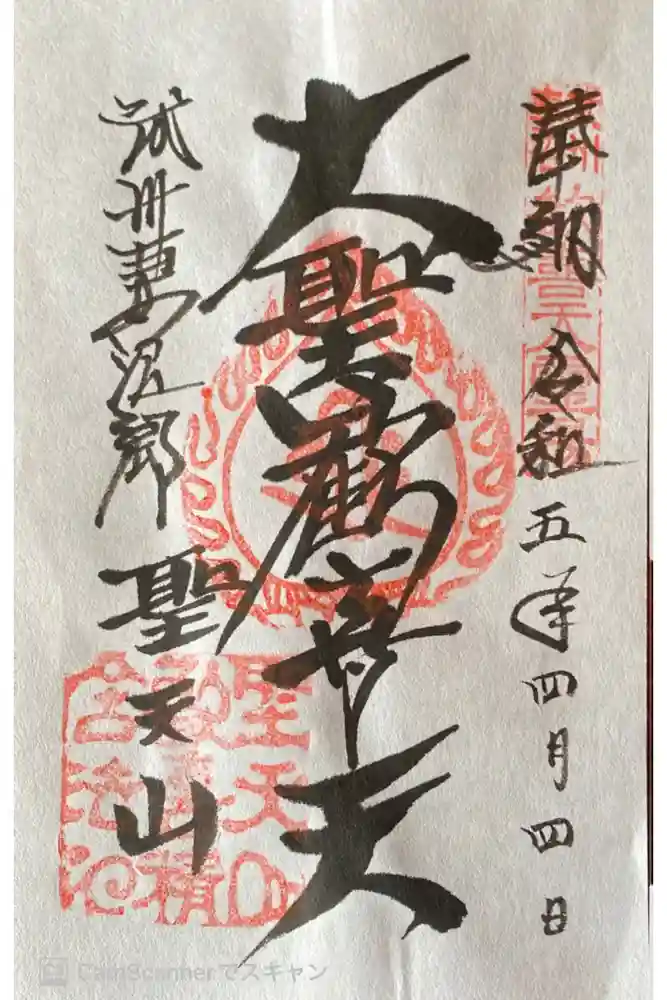 奉納 令和五年四月四日
大聖歓喜天
武州妻沼郷
聖天山
CamScannerでスキャン